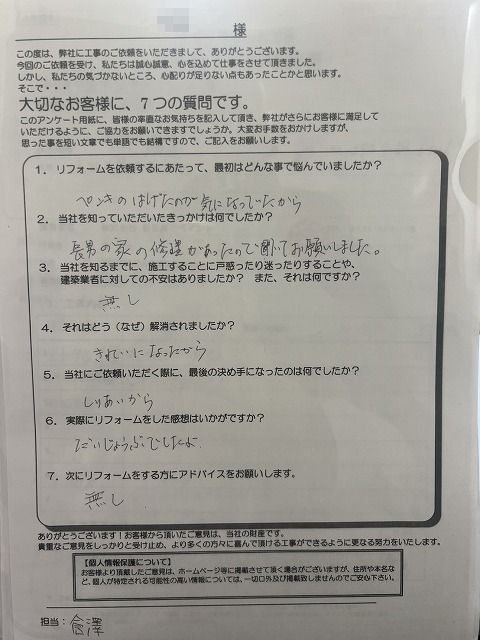 様
この度は、弊社に工事のご依頼をいただきまして、ありがとうございます。
今回のご依頼を受け、私たちは誠心誠意、心を込めて仕事をさせて頂きました。
しかし、私たちの気づかないところ、心配りが足りない点もあったことかと思います。
そこで・・・
大切なお客様に、7つの質問です。
このアンケート用紙に、皆様の率直なお気持ちを記入して頂き、弊社がさらにお客様に満足して
いただけるように、ご協力をお願いできますでしょうか。大変お手数をおかけしますが、
思った事を短い文章でも単語でも結構ですので、ご記入をお願いします。
1. リフォームを依頼するにあたって、最初はどんな事で悩んでいましたか?
ペンキのはげたのが気になっていたから
2. 当社を知っていただいたきっかけは何でしたか?
長男の家の修理があったので聞いてお願いしました。
3. 当社を知るまでに、施工することに戸惑ったり迷ったりすることや、
建築業者に対しての不安はありましたか? また、それは何ですか?
無し
4. それはどう(なぜ)解消されましたか?
きれいになったから
5. 当社にご依頼いただく際に、最後の決め手になったのは何でしたか?
しりあいから
6. 実際にリフォームをした感想はいかがですか?
だいじょうぶでしたよ
7. 次にリフォームをする方にアドバイスをお願いします。
無し
ありがとうございます!お客様から頂いたご意見は、当社の財産です。
貴重なご意見をしっかりと受け止め、より多くの方々に喜んで頂ける工事ができるように更なる努力をいたします。
【個人情報保護について】
お客様より頂戴したご意見は、ホームページ等に掲載させて頂く場合がございますが、住所や本名な
ど、個人が特定される可能性の高い情報については、一切口外及び掲載致しませんのでご安心下さい。
担当：會澤